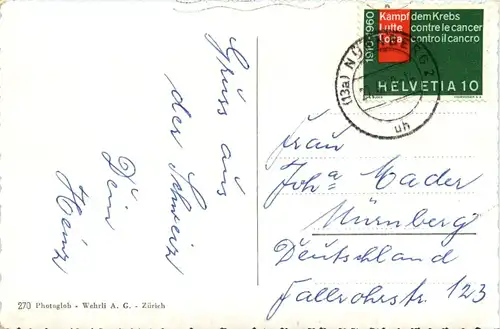 Gruss aus
der Schweiz
Dein
Heinz
270 Photoglob - Wehrli A. G. - Zürich
1910-1960
Kampf dem Krebs
Lutte contre le cancer
Lotta contro il cancro
HELVETIA 10
(13a) NÜRNBERG 2
uh
Frau
Joha Mader
Nürnberg
Deutschland
Fallrohrstr. 123